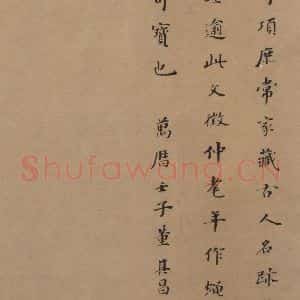 項庶常家藏古人名跡
逾此文徵仲老年作
可寶也 萬曆壬子董其昌
Shufawang.CN